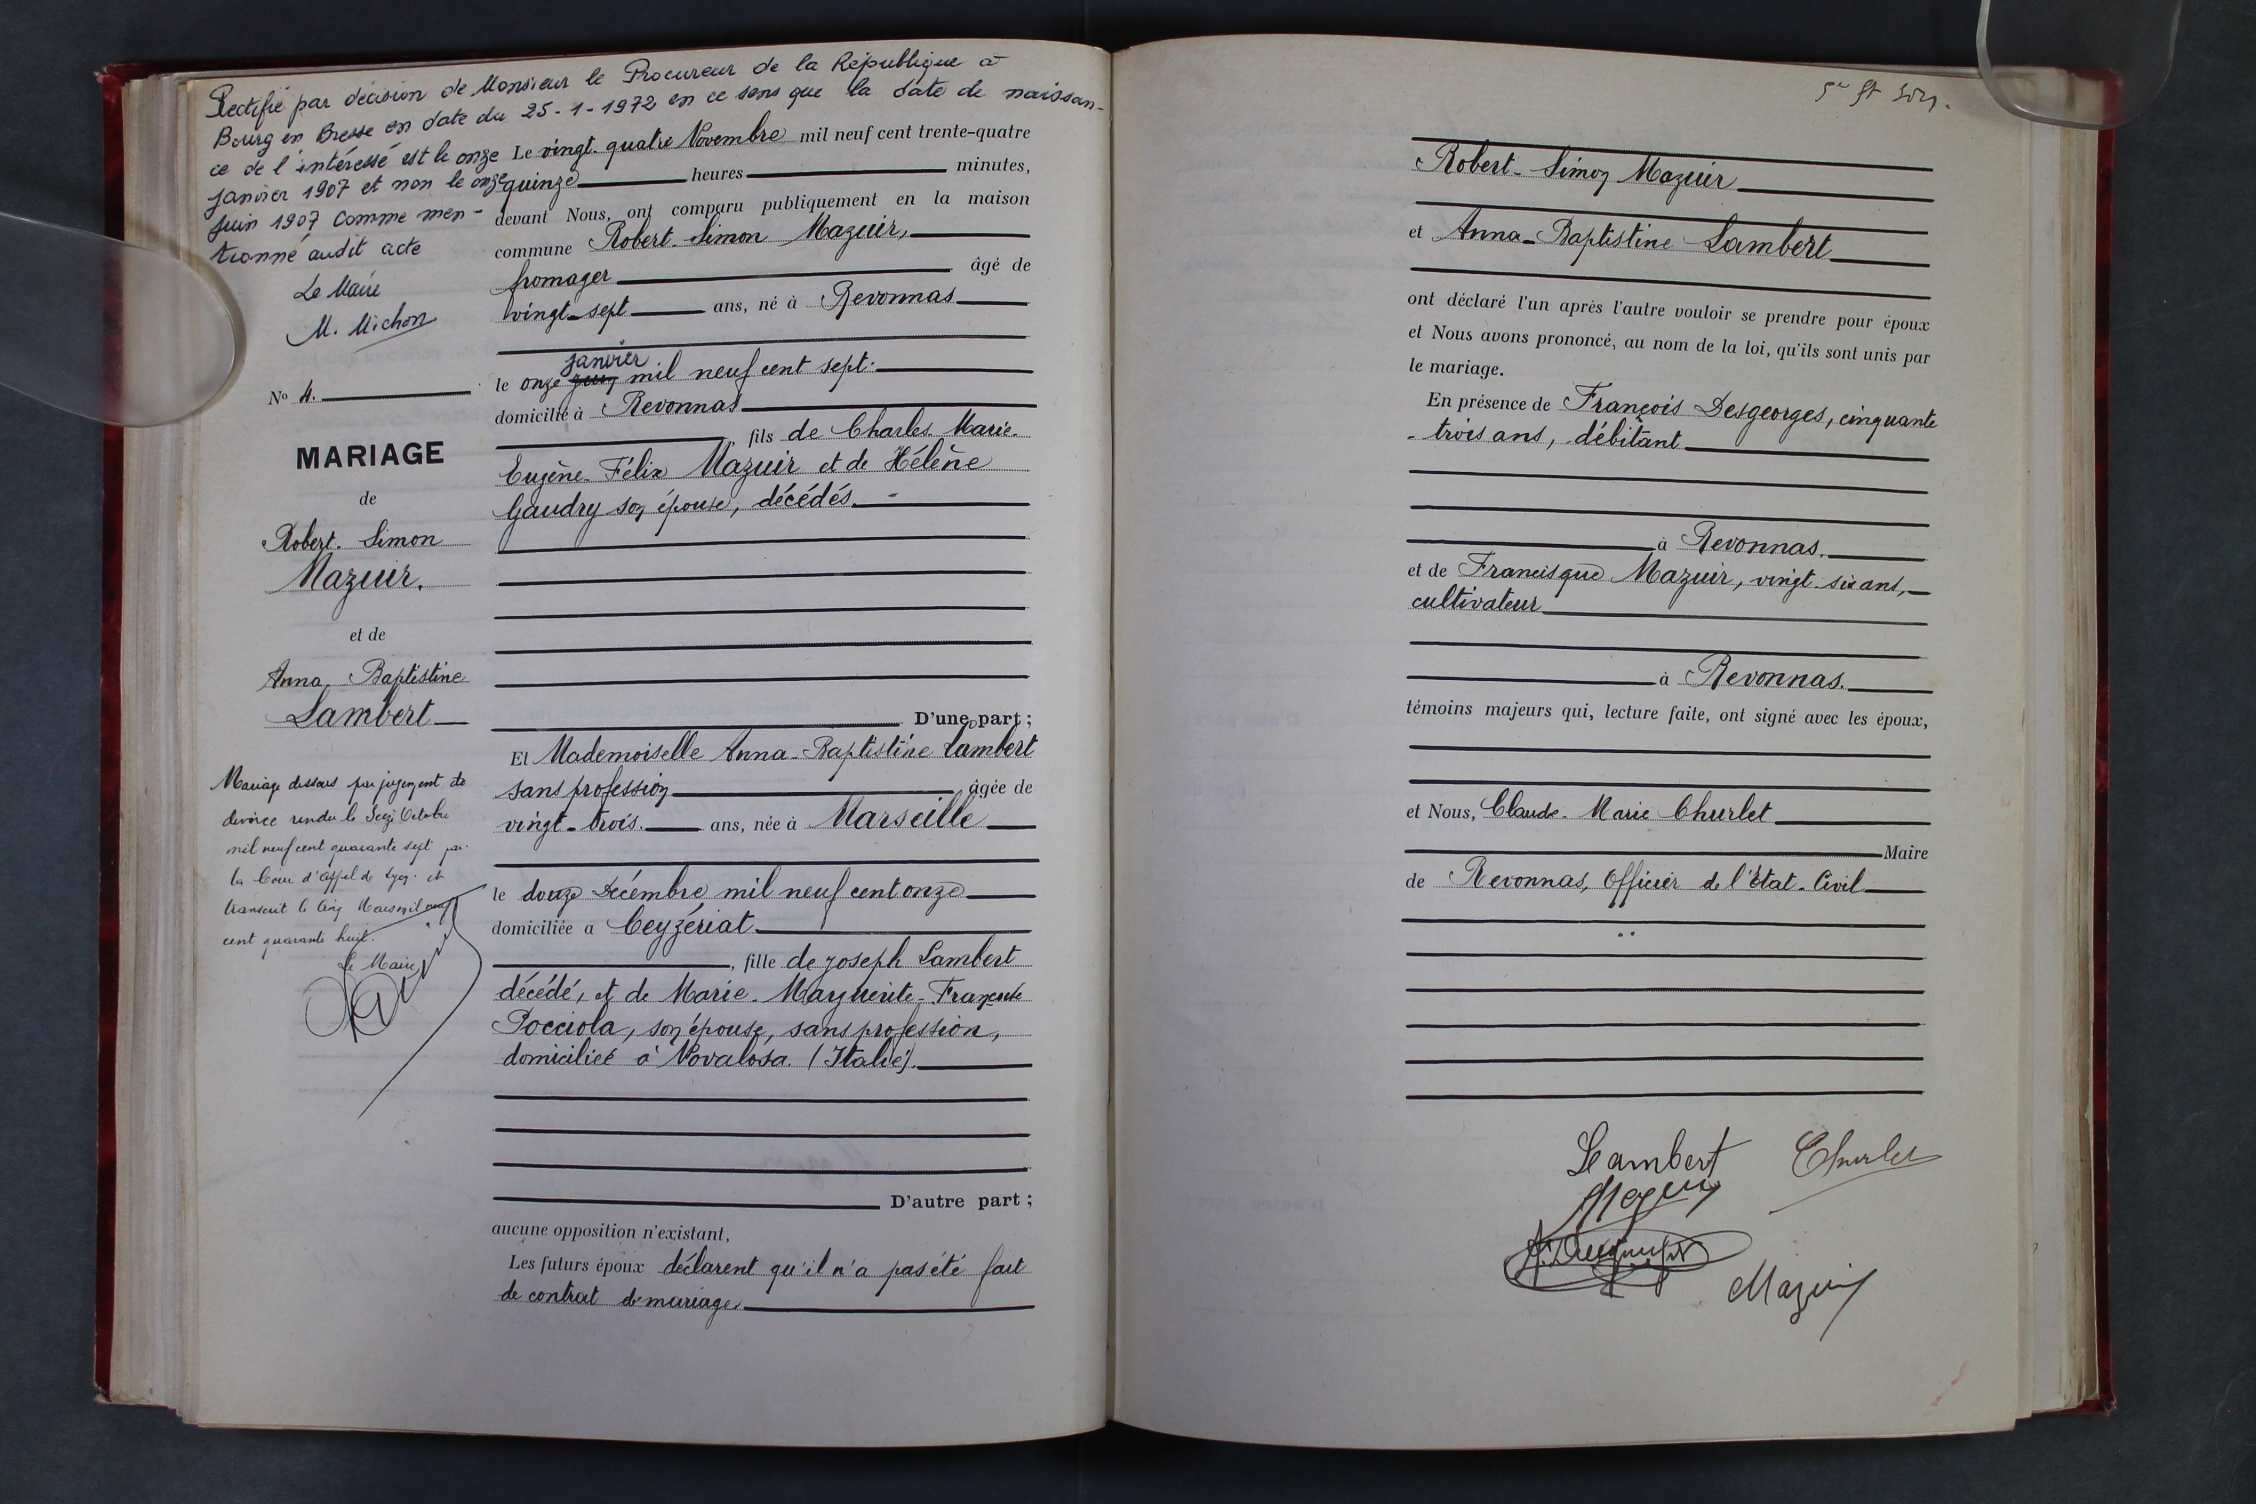 Rectifié par décision de Monsieur le Procureur de la République à
Bourg en Bresse en date du 25-1-1972 en ce sens que la date de naissan-
ce de l'intéressé est le onze
janvier 1907 et non le onze
juin 1907 comme men-
tionné audit acte
Le Maire
M. Michon
No 4.
MARIAGE
de
Robert-Simon
Mazuir.
et de
Anna-Baptistine
Lambert
Mariage dissous par jugement de
divorce rendu le Seize Octobre
mil neuf cent quarante sept par
la Cour d'Appel de Lyon et
transcrit le cinq Mars mil neuf
cent quarante huit.
Le Maire
Le vingt-quatre Novembre mil neuf cent trente-quatre
quinze heures minutes,
devant Nous, ont comparu publiquement en la maison
commune Robert-Simon Mazuir,
fromager âgé de
vingt-sept ans, né à Revonnas
janvier
le onze juin mil neuf cent sept.
domicilié à Revonnas
, fils de Charles-Marie-
Eugène-Félix Mazuir et de Hélène
Gaudry son épouse, décédés.
D'une part ;
Et Mademoiselle Anna-Baptistine Lambert
sans profession âgée de
vingt-trois. ans, née à Marseille
le douze Décembre mil neuf cent onze
domiciliée à Ceyzériat
, fille de Joseph Lambert
décédé, et de Marie-Marguerite-Françoise
Pocciola, son épouse, sans profession,
domiciliée à Novalosa. (Italie).
D'autre part ;
aucune opposition n'existant,
Les futurs époux déclarent qu'il n'a pas été fait
de contrat de mariage.
Robert-Simon Mazuir
et Anna-Baptistine Lambert
ont déclaré l'un après l'autre vouloir se prendre pour époux
et Nous avons prononcé, au nom de la loi, qu'ils sont unis par
le mariage.
En présence de François Desgeorges, cinquante
-trois ans, débitant
à Revonnas.
et de Francisque Mazuir, vingt-six ans,
cultivateur
à Revonnas.
témoins majeurs qui, lecture faite, ont signé avec les époux,
et Nous, Claude-Marie Churlet
Maire
de Revonnas, Officier de l'Etat-Civil
Lambert Churlet
Mazuir
Mazuir